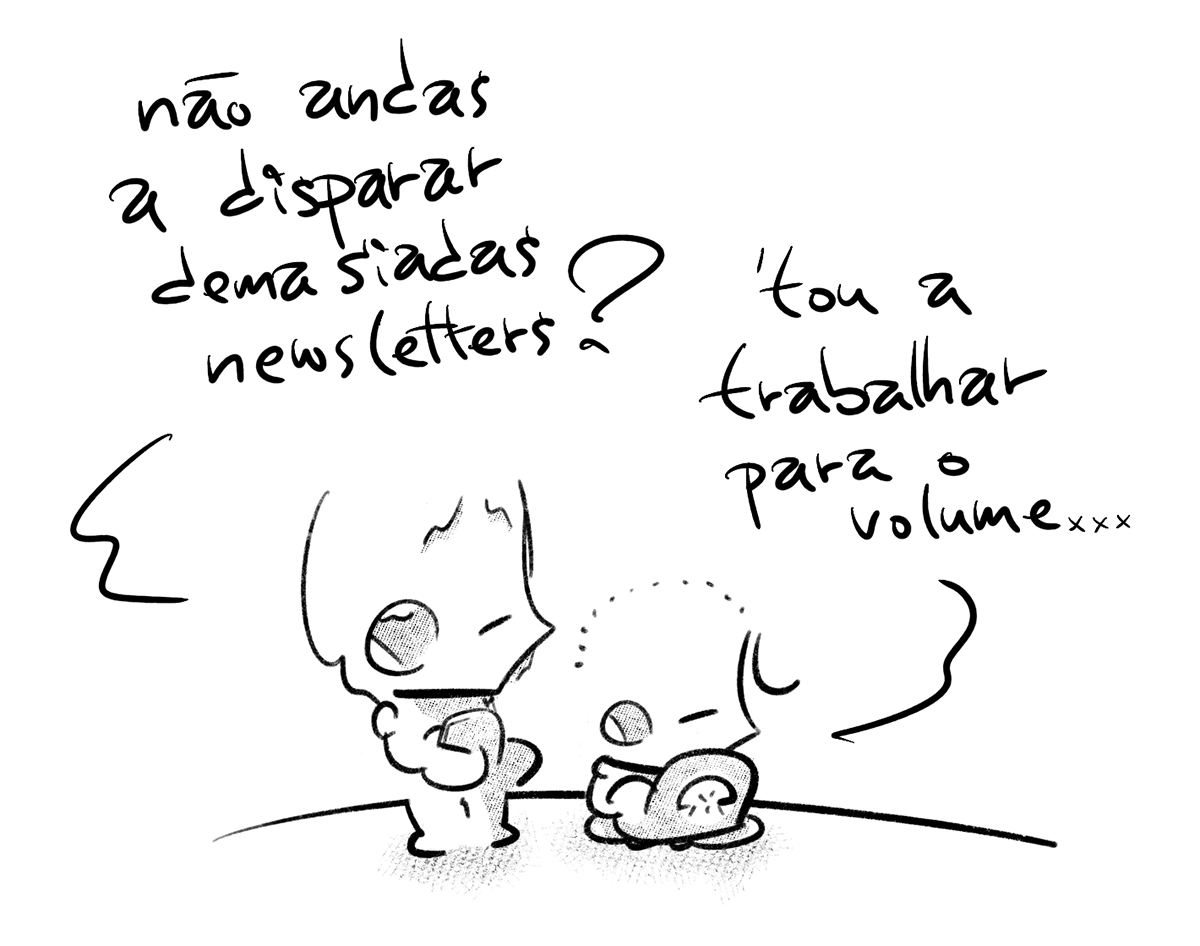 não andas
a disparar
demasiadas
newsletters?
'tou a
trabalhar
para o
volume...